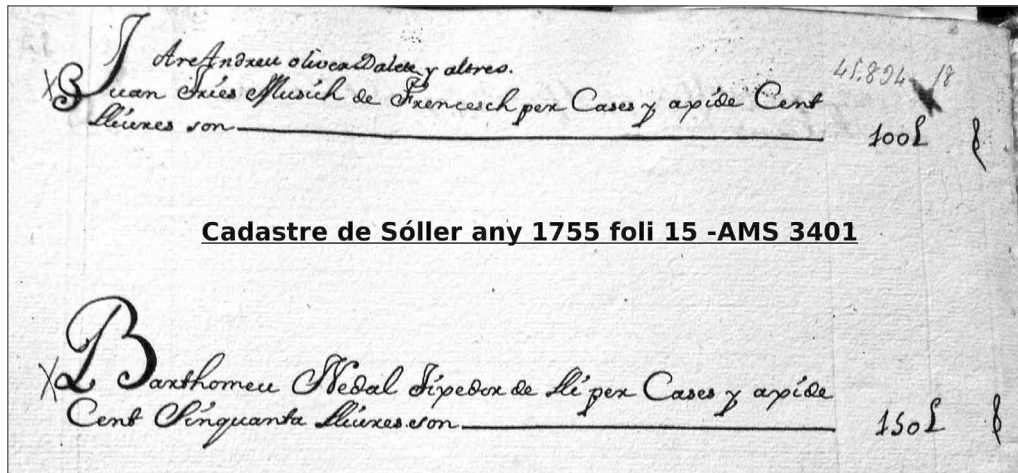 Are Andreu oliver Dalete y altres.
45.894 18
Juan Fries Musich de Frencesch per Cases y apide Cent
lliures son 100L
Cadastre de Sóller any 1755 foli 15 -AMS 3401
Barthomeu Nedal Tixedor de lli per Cases y apide
Cent Sinquanta lliures son 150L